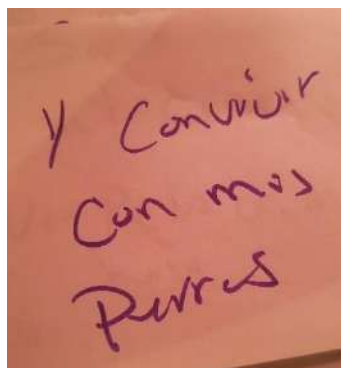 y Convivir
Con mis
Perros